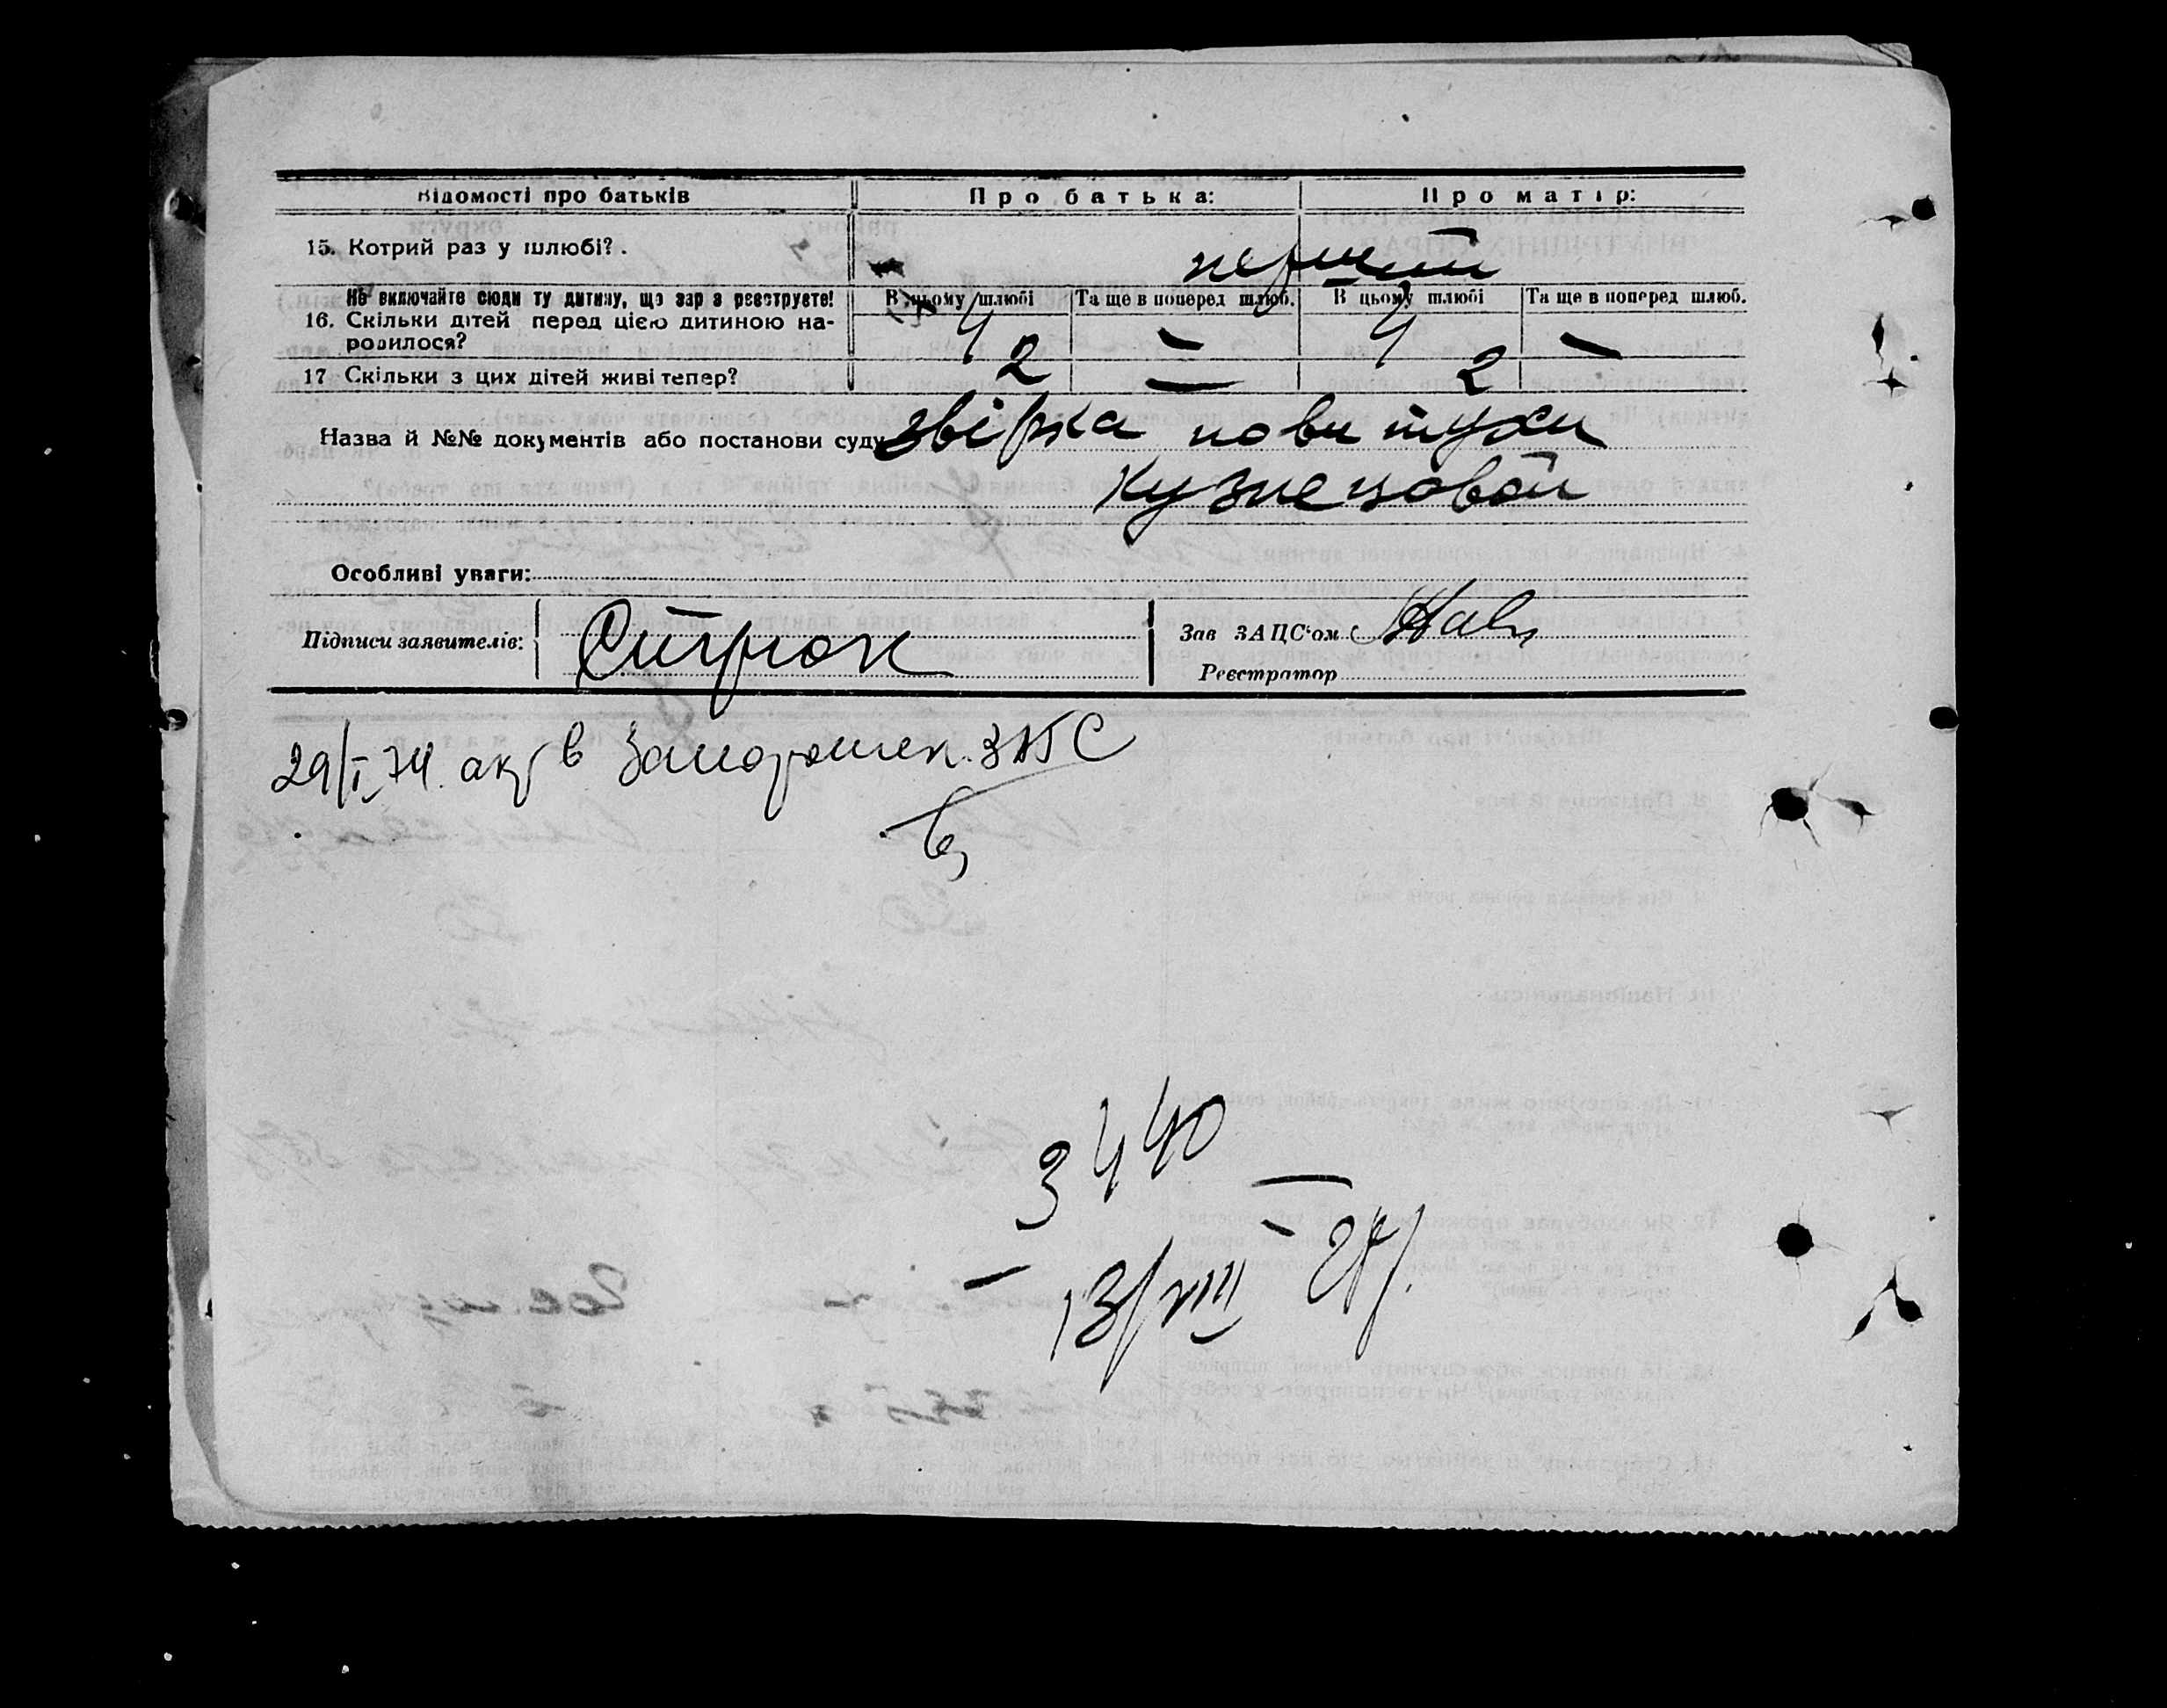 Відомості про батьків Про батька: Про матір:
15. Котрий раз у шлюбі? . перший
Не включайте сюди ту дитину, що зараз реєструєте! В цьому шлюбі Та ще в поперед шлюб. В цьому шлюбі Та ще в поперед шлюб.
16. Скільки дітей перед цією дитиною на-
родилося? 4 — 4 —
17 Скільки з цих дітей живі тепер? 2 — 2
Назва й №№ документів або постанови суду звірка повитухи
Кузнецовой
Особливі уваги:
Підписи заявителів: Зав ЗАЦС'ом
Реєстратор
29/I 74. в ЗАГС
3440
13/VIII